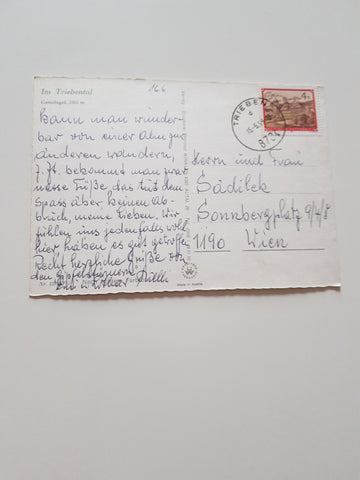 Im Triebental
166
kann man wunder-
bar von einer Alm zur
anderen wandern,
z. Zt. bekommt man zwar
nasse Füße, das tut dem
Spass aber keinen Ab-
bruch, meine Lieben. Wir
fühlen uns jedenfalls wohl
hier haben es gut getroffen
Recht herzliche Grüße von
den Gipfelstürmern
TRIEBEN
8784
4
Herrn und Frau
Sádilek
Sonnbergplatz 9/7/8
1190 Wien